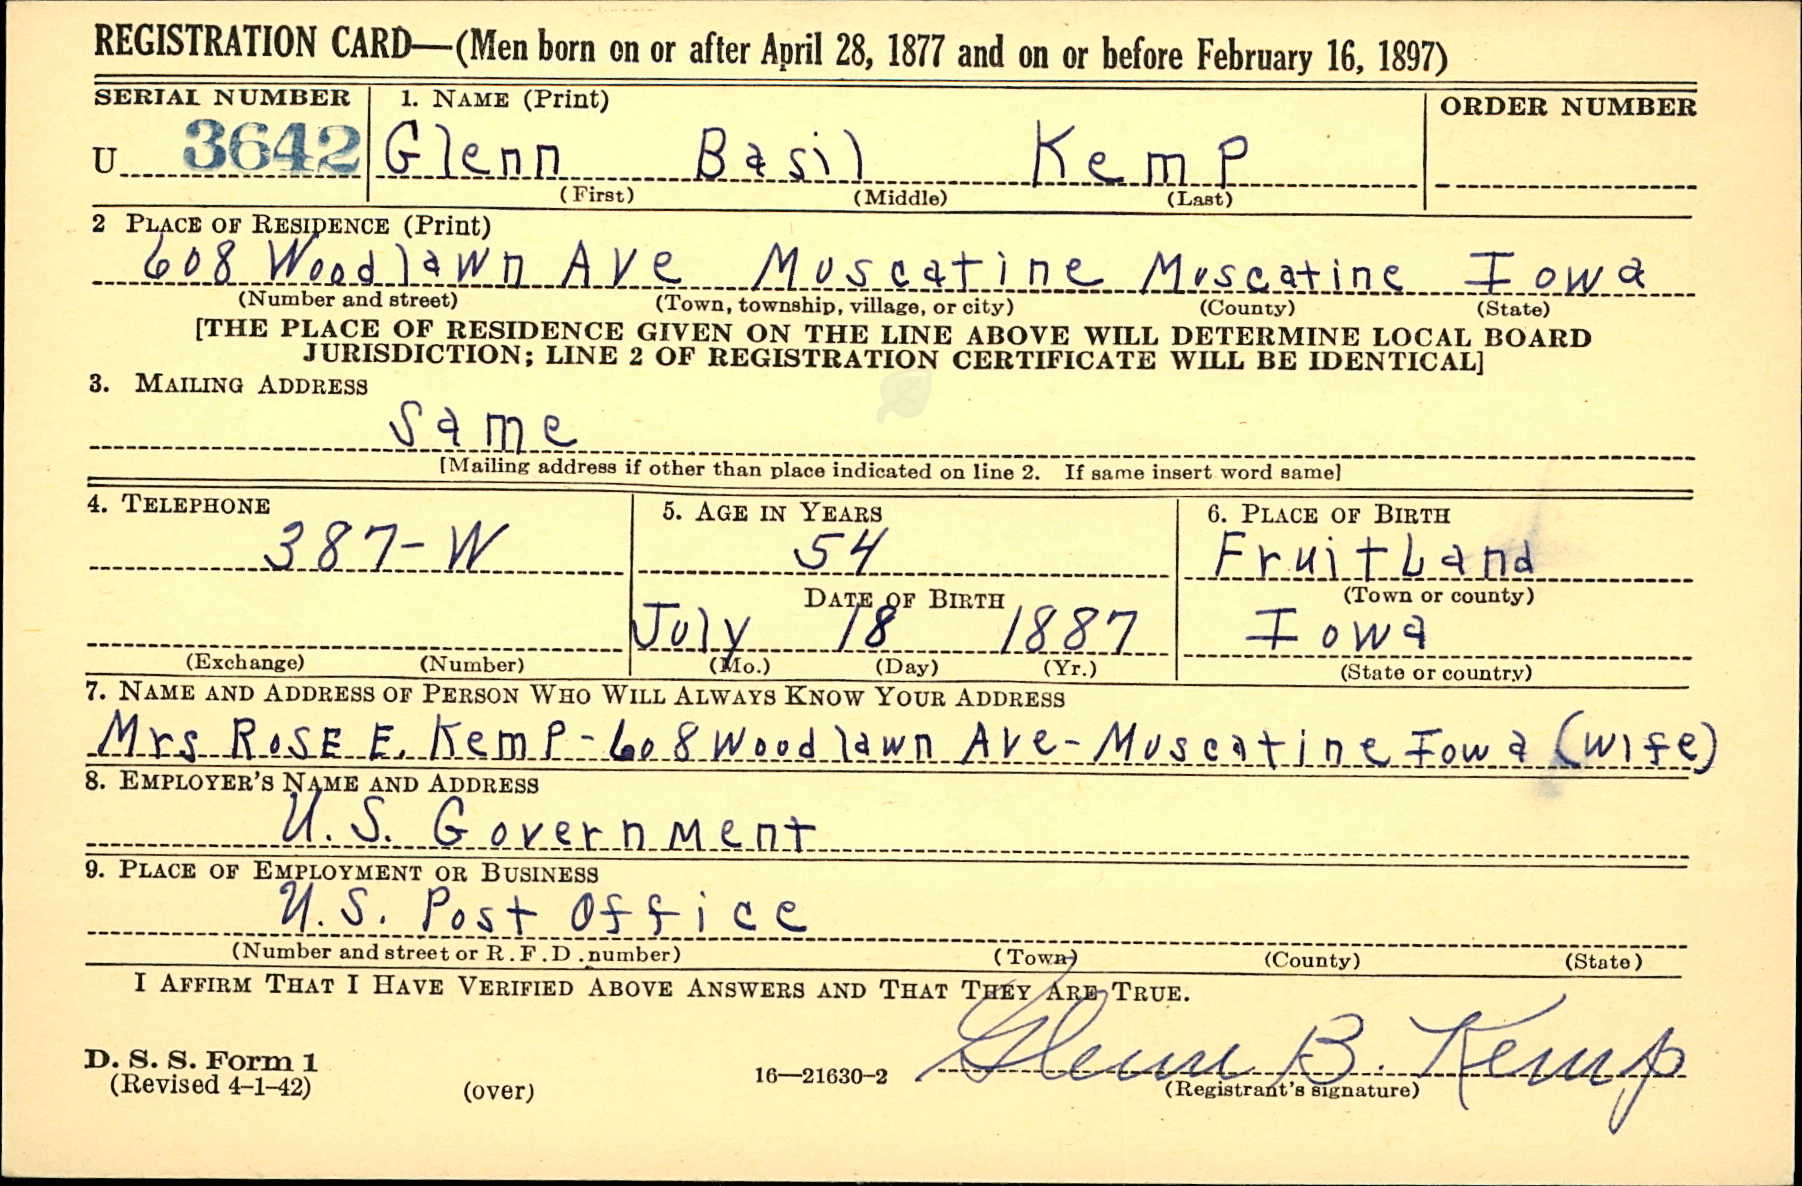 REGISTRATION CARD—(Men born on or after April 28, 1877 and on or before February 16, 1897)
SERIAL NUMBER
1. NAME (Print)
ORDER NUMBER
U 3642
Glenn Basil Kemp
(First) (Middle) (Last)
2 PLACE OF RESIDENCE (Print)
608 Woodlawn Ave Muscatine Muscatine Iowa
(Number and street) (Town, township, village, or city) (County) (State)
[THE PLACE OF RESIDENCE GIVEN ON THE LINE ABOVE WILL DETERMINE LOCAL BOARD
JURISDICTION; LINE 2 OF REGISTRATION CERTIFICATE WILL BE IDENTICAL]
3. MAILING ADDRESS
Same
[Mailing address if other than place indicated on line 2. If same insert word same]
4. TELEPHONE
387-W
(Exchange) (Number)
5. AGE IN YEARS
54
DATE OF BIRTH
July 18 1887
(Mo.) (Day) (Yr.)
6. PLACE OF BIRTH
FruitLand
(Town or county)
Iowa
(State or country)
7. NAME AND ADDRESS OF PERSON WHO WILL ALWAYS KNOW YOUR ADDRESS
Mrs RosE E. Kemp-608 Woodlawn Ave-Muscatine Iowa (wife)
8. EMPLOYER'S NAME AND ADDRESS
U.S. Government
9. PLACE OF EMPLOYMENT OR BUSINESS
U.S. Post Office
(Number and street or R.F.D. number) (Town) (County) (State)
I AFFIRM THAT I HAVE VERIFIED ABOVE ANSWERS AND THAT THEY ARE TRUE.
Glenn B. Kemp
D. S. S. Form 1
(Revised 4-1-42) (over) 16—21630-2 (Registrant's signature)